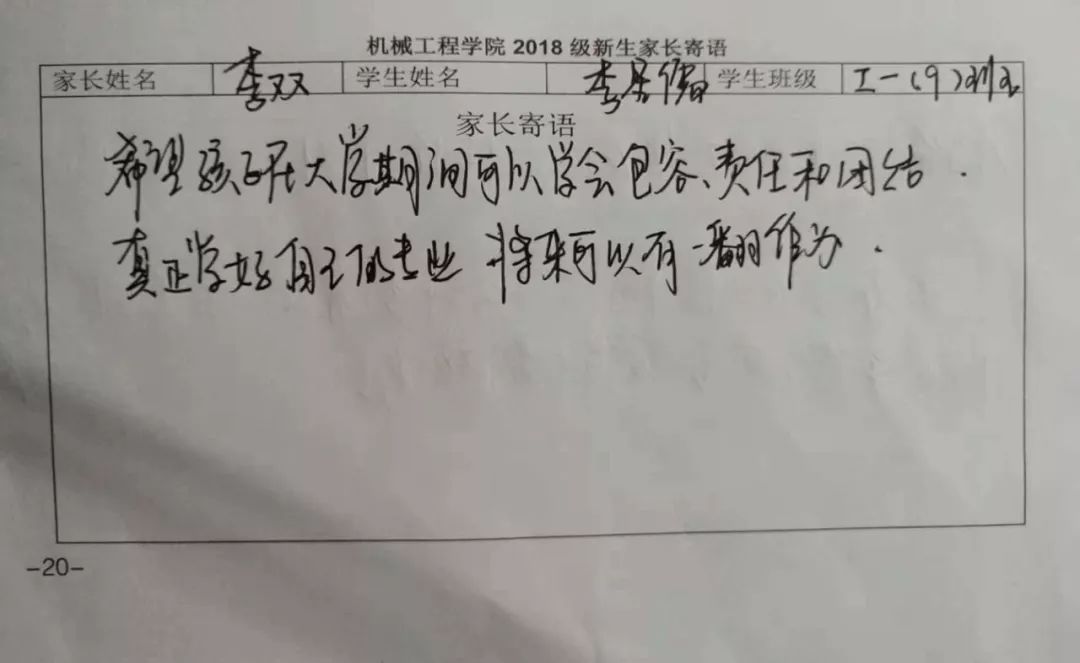 机械工程学院 2018 级新生家长寄语
家长姓名 李双 学生姓名 李 学生班级 工一(9)
家长寄语
希望孩子在大学期间可以学会包容、责任和团结.
真正学好自己的专业 将来可以有一翻作为.
-20-